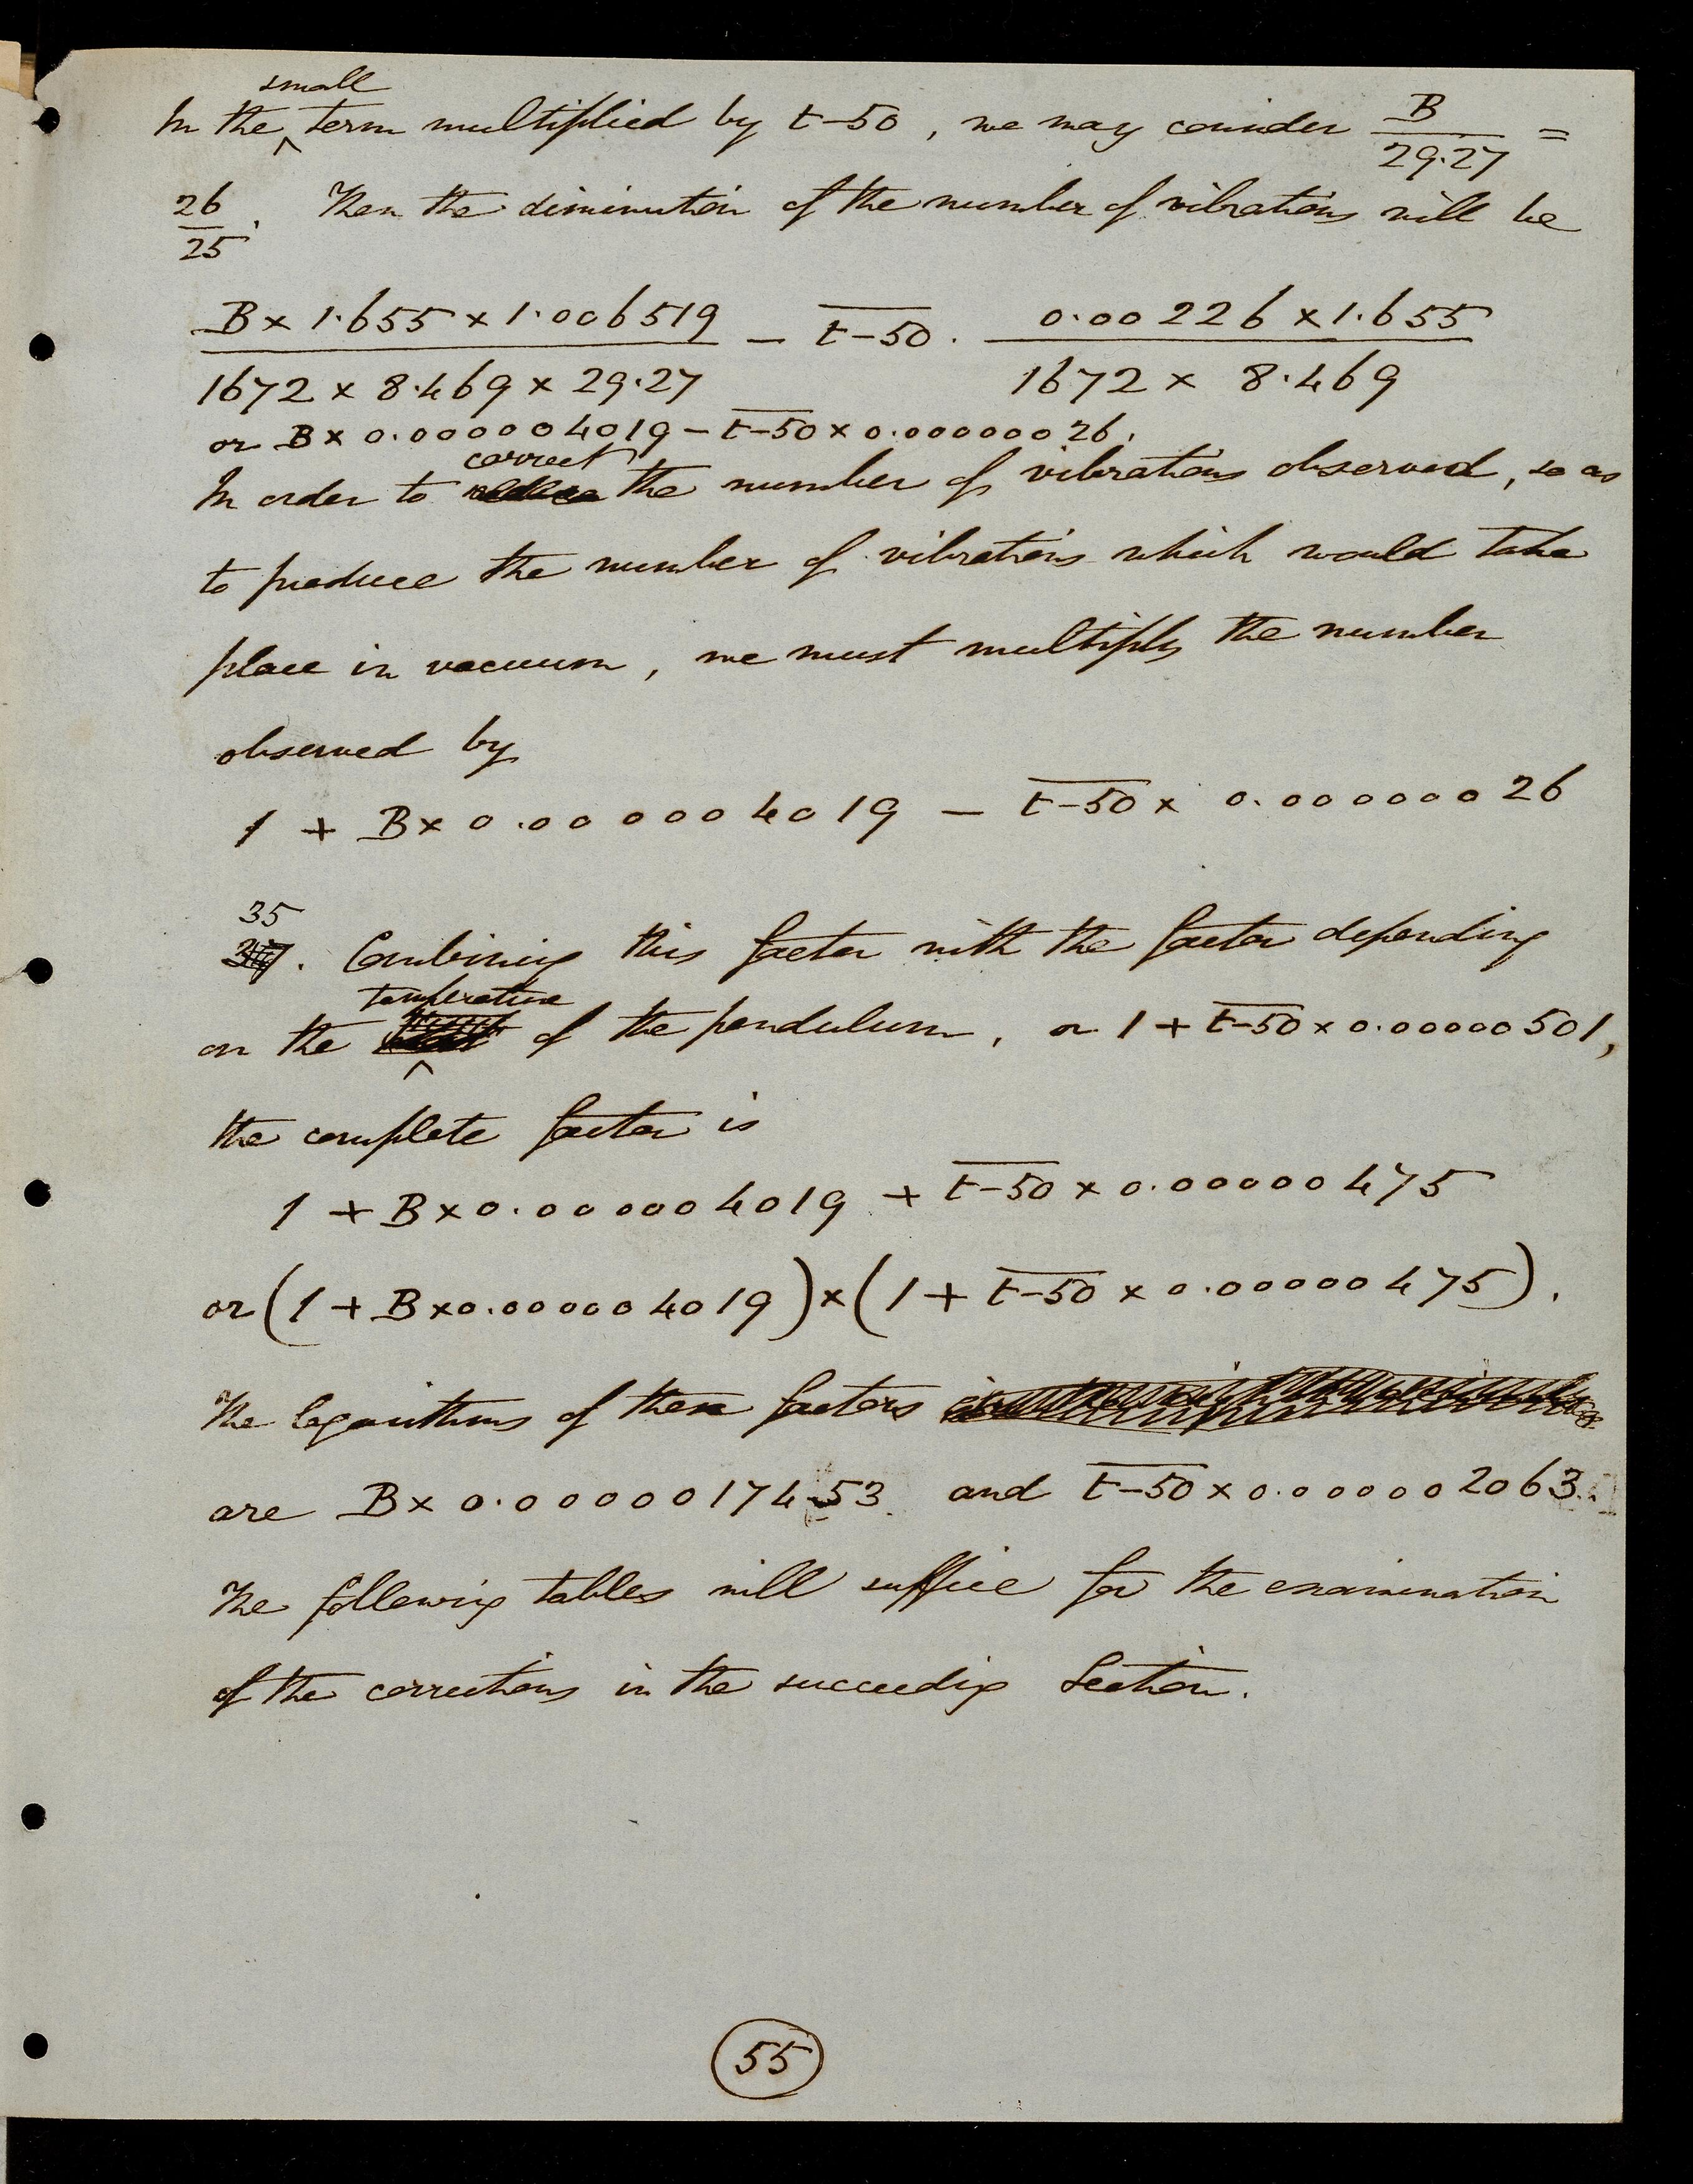 small
In the ‸ term multiplied by t-50, we may consider B/29·27 =
26/25. Then the diminution of the number of vibrations will be
B × 1·655 × 1·006519 / 1672 × 8·469 × 29·27 — t-50 · 0·00226 × 1·655 / 1672 × 8·469
or B × 0·000004019 — t-50 × 0·00000026.
correct
In order to the number of vibrations observed, so as
to produce the number of vibrations which would take
place in vacuum, we must multiply the number
observed by
1 + B × 0·000004019 — t-50 × 0·00000026
35
. Combining this factor with the factor depending
temperature
on the ‸ of the pendulum, or 1 + t-50 × 0·00000501,
the complete factor is
1 + B × 0·000004019 + t-50 × 0·00000475
or (1 + B × 0·000004019) × (1 + t-50 × 0·00000475).
The logarithms of these factors
are B × 0·00000017453 and t-50 × 0·000002063.
The following tables will suffice for the examination
of the corrections in the succeeding Section.
55